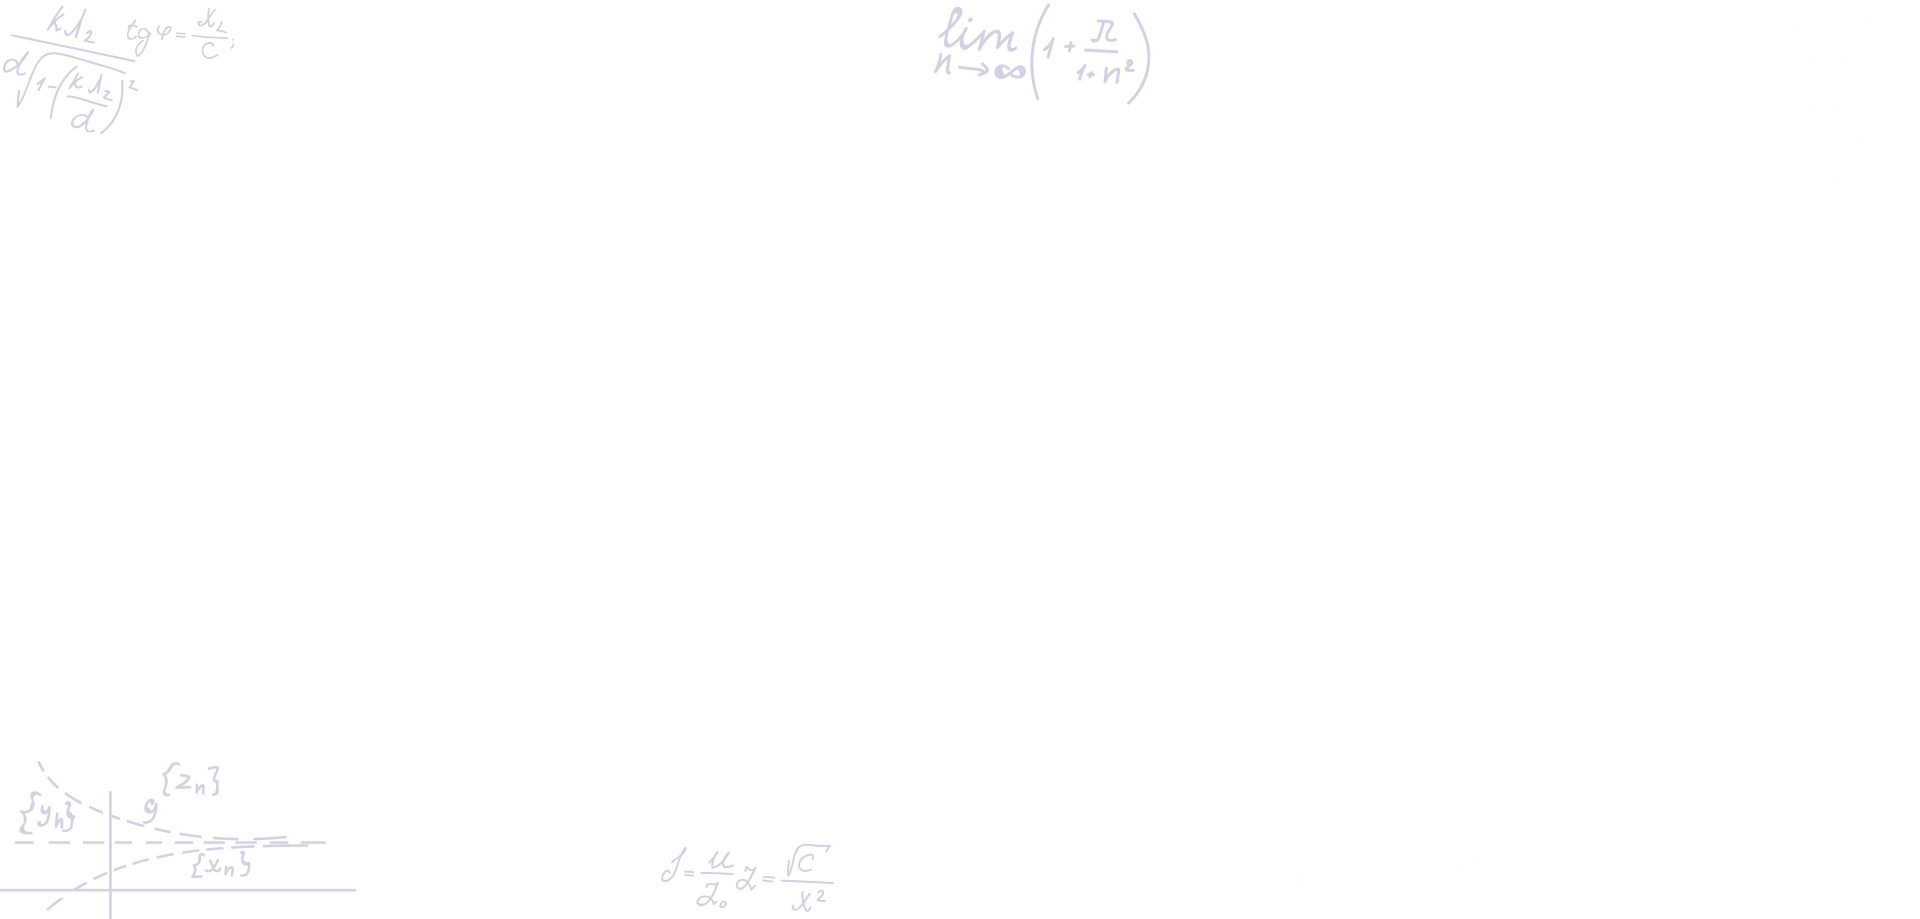 kλ₂ / d√(1-(kλ₂/d)²)
tg φ = x_L / C ;
lim n→∞ (1 + π / (1+n²))
{zₙ}
{yₙ}
g
{xₙ}
J = u / Z₀
Z = √C / x²